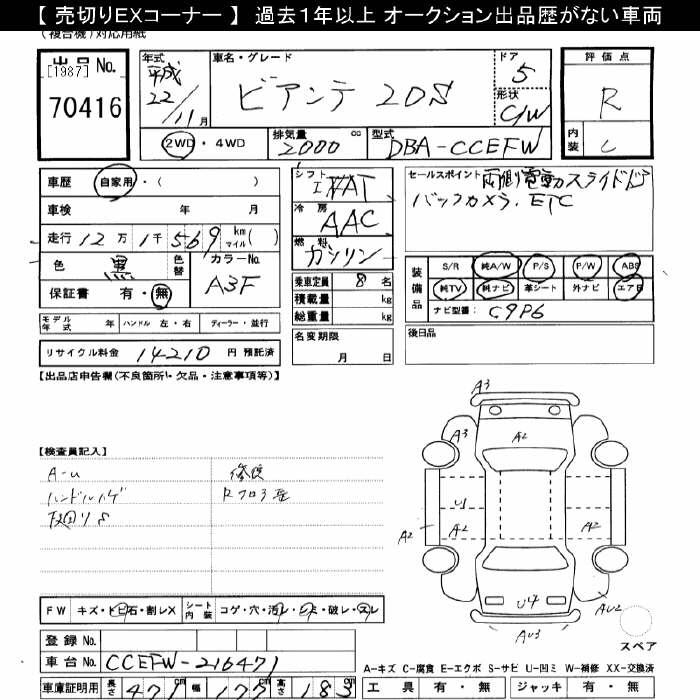 【 売切りEXコーナー 】 過去1年以上 オークション出品歴がない車両
(複合機)対応用紙
出品 No.
[1987]
70416
年式
平成
22/11月
車名・グレード
ビアンテ 20S
ドア
5
形状
C/W
評価点
R
内装
C
2WD・4WD
排気量
2000 cc
型式
DBA-CCEFW
車歴 自家用・( )
車検 年 月
走行 12万 1千 569 km マイル( )
色 黒
色替
カラーNo.
A3F
保証書 有・無
シフト
FAT
冷房
AAC
燃料
ガソリン
乗車定員 8 名
積載量 kg
総重量 kg
セールスポイント 両側電動スライドドア
バックカメラ. ETC
装備品
S/R 純A/W P/S P/W ABS
純TV 純ナビ 革シート 外ナビ エアB
ナビ型番: C9P6
モデル年式 年 ハンドル 左・右 ディーラー・並行
リサイクル料金 14210 円 預託済
名変期限
月 日
後日品
【出品店申告欄(不良箇所・欠品・注意事項等)】
【検査員記入】
A-u
修復
ハンドルハゲ
A3
A3
A2
U1
A2
A2
A2
U4
AU2
AU3
FW キズ・トビ石・割レX
シート内装 コゲ・穴・汚レ・シミ・破レ・スレ
登録 No.
車台 No. CCEFW-216471
車庫証明用 長さ 471 cm 幅 177 cm 高さ 183 cm
スペア
A-キズ C-腐食 E-エクボ S-サビ U-凹ミ W-補修 XX-交換済
工具 有・無 ジャッキ 有・無